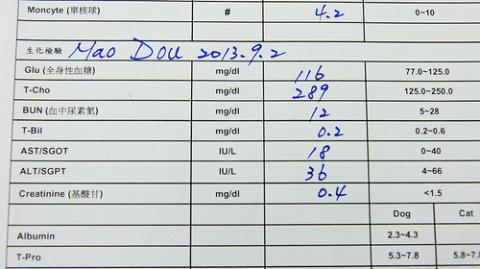 Moncyte (單核球) # 4.2 0~10
生化檢驗 Mao Dou 2013.9.2
Glu (全身性血糖) mg/dl 116 77.0~125.0
T-Cho mg/dl 289 125.0~250.0
BUN (血中尿素氮) mg/dl 12 5~28
T-Bil mg/dl 0.2 0.2~0.6
AST/SGOT IU/L 18 0~40
ALT/SGPT IU/L 36 4~66
Creatinine (基酸甘) mg/dl 0.4 <1.5
Dog Cat
Albumin 2.3~4.3
T-Pro 5.3~7.8 5.8~7.8